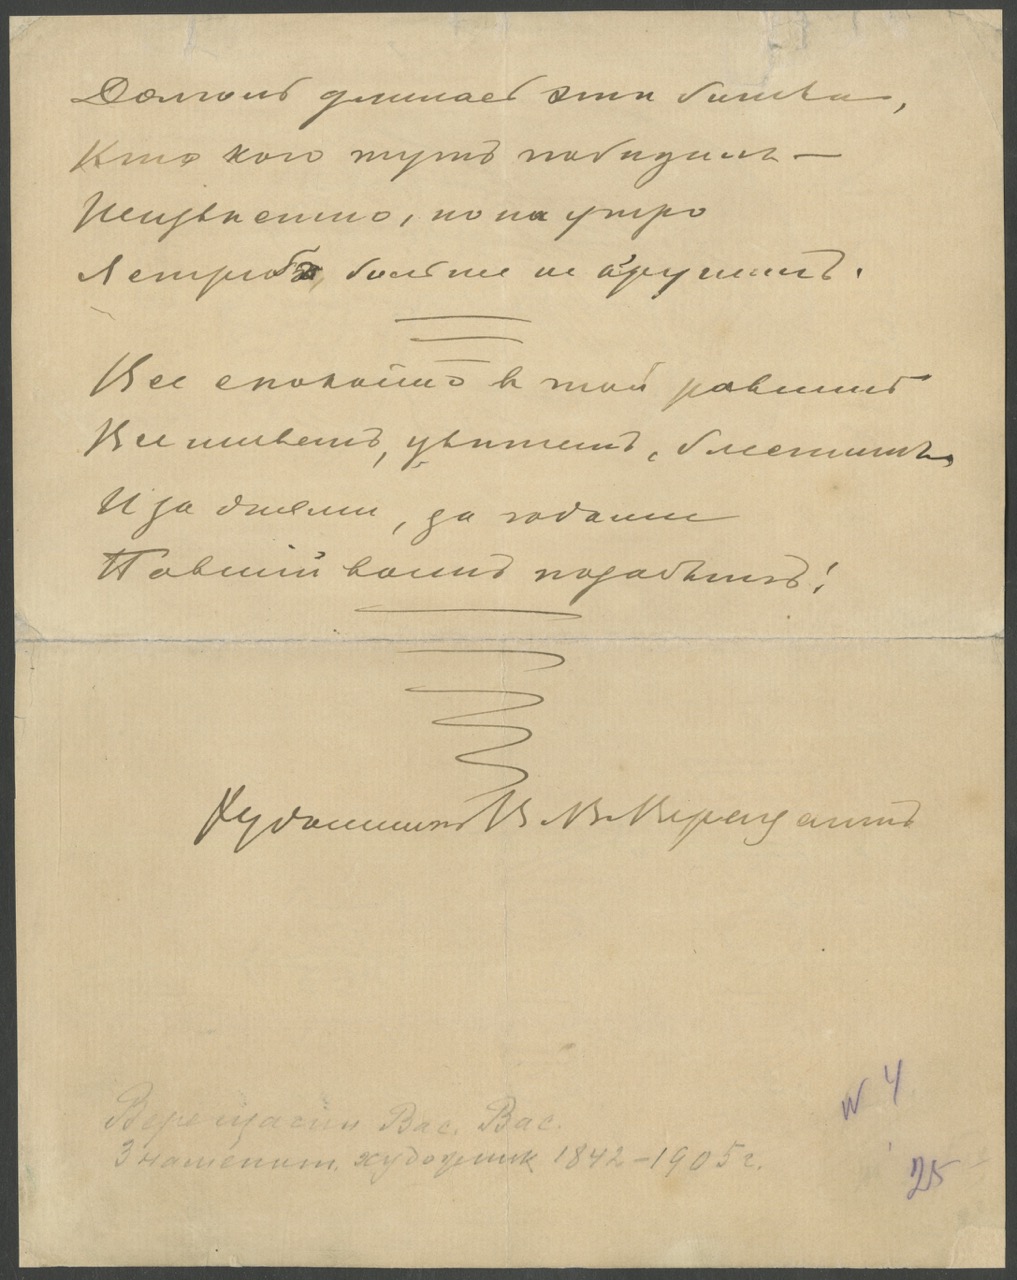 Долголь длилась эта битва,
Кто кого тутъ победилъ —
Неизвѣстно, но на утро
Ястребъ больше не кружилъ.
Все спокойно въ той равнинѣ
Все живетъ, цвѣтетъ, блеститъ,
И за днями, за годами
Павшій воинъ позабытъ!
Художникъ В. В. Верещагинъ
Верещагин Вас. Вас.
Знаменит. художник 1842–1905 г.
№ 4
25